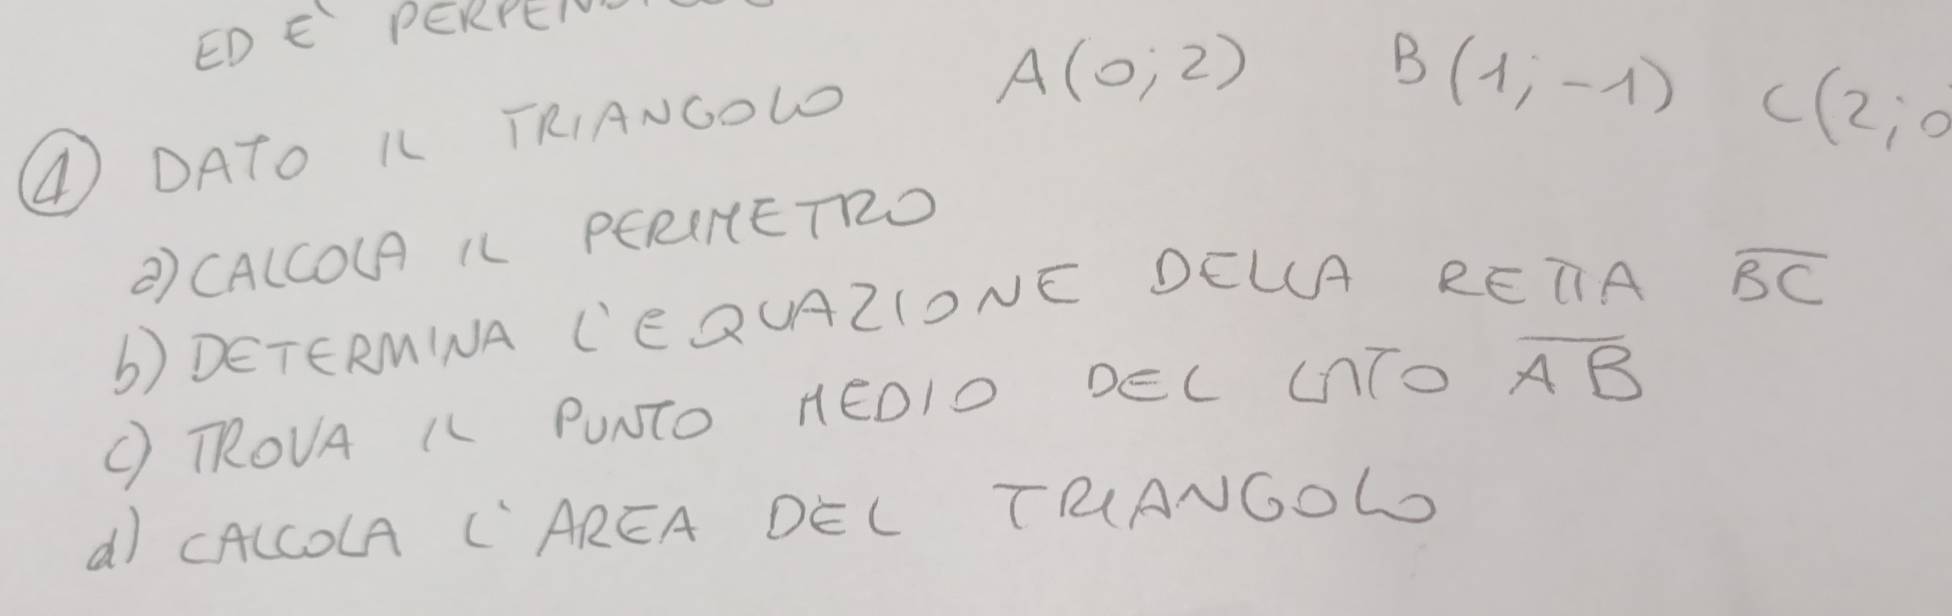 ED È
① DATO IL TRIANGOLO A(0;2) B(1;-1) C(2;0
a) CALCOLA IL PERIMETRO
b) DETERMINA L'EQUAZIONE DELLA RETTA B̅C̅
c) TROVA IL PUNTO MEDIO DEL LATO A̅B̅
d) CALCOLA L'AREA DEL TRIANGOLO